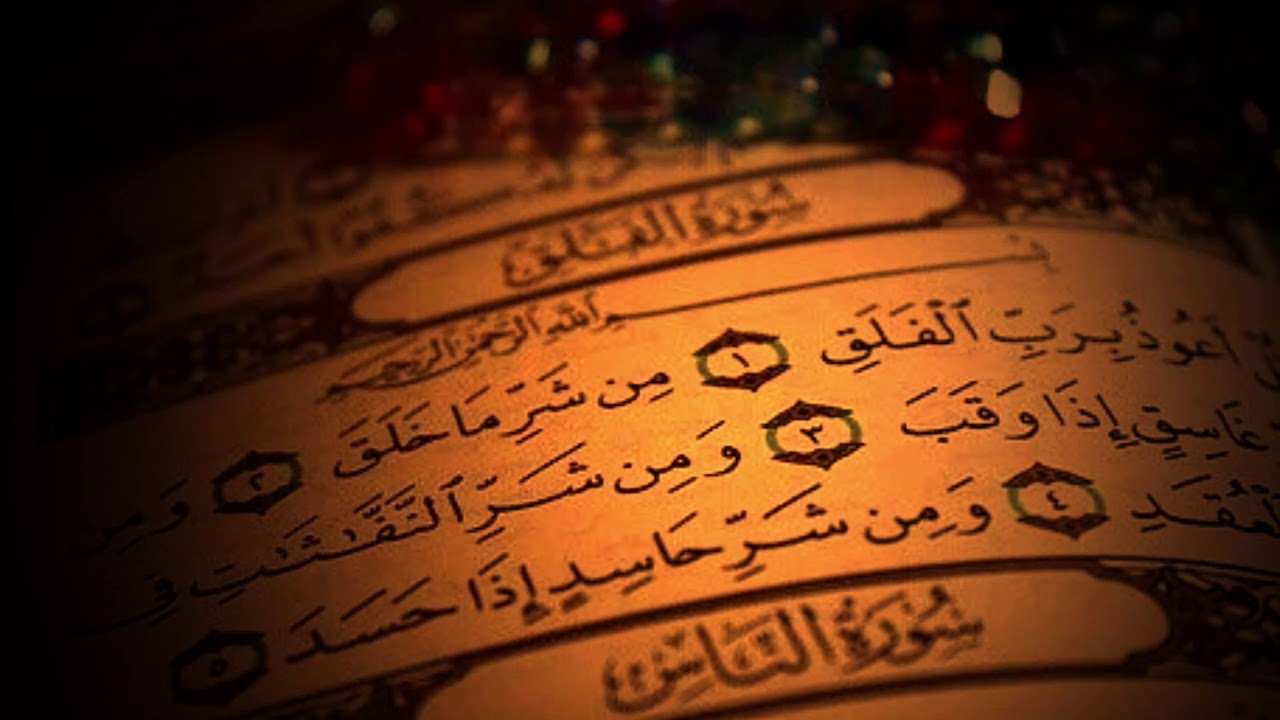 كُفُوًا أَحَدٌ
سُورَةُ الْفَلَقِ
بِسْمِ اللَّهِ الرَّحْمَٰنِ الرَّحِيمِ
أَعُوذُ بِرَبِّ ٱلْفَلَقِ ١ مِن شَرِّ مَا خَلَقَ ٢ وَمِن
غَاسِقٍ إِذَا وَقَبَ ٣ وَمِن شَرِّ ٱلنَّفَّٰثَٰتِ فِى
ٱلْعُقَدِ ٤ وَمِن شَرِّ حَاسِدٍ إِذَا حَسَدَ ٥
سُورَةُ النَّاسِ